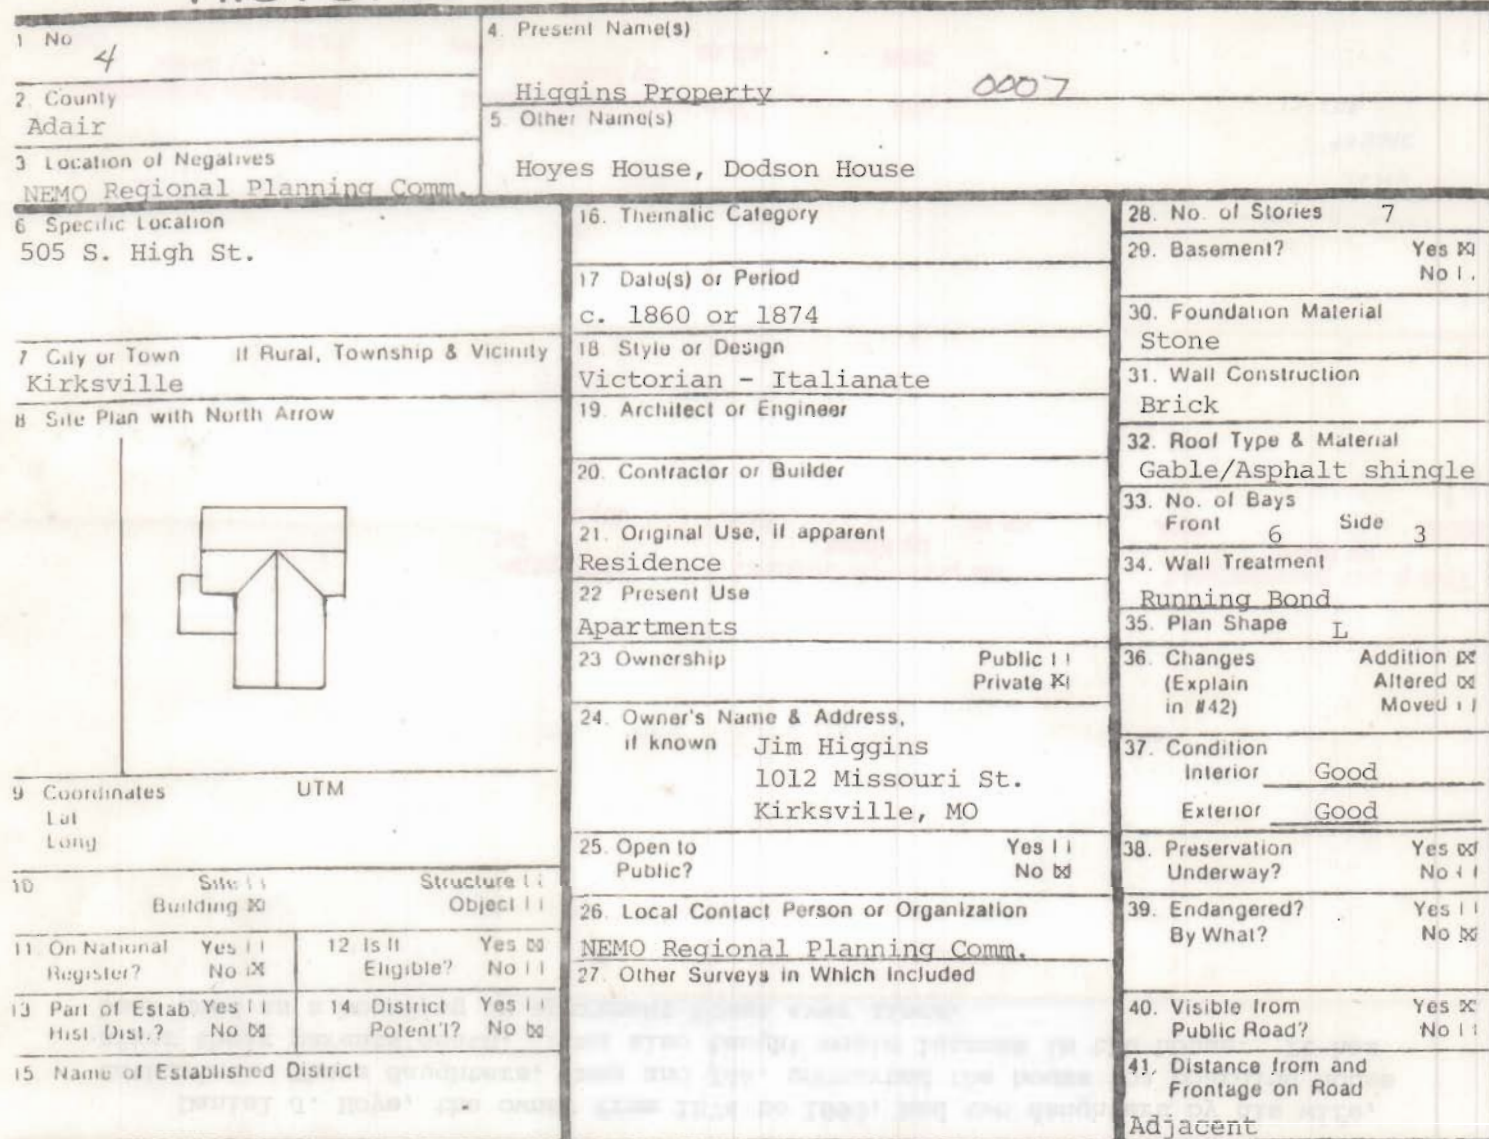 1 No
4
2. County
Adair
3 Location of Negatives
NEMO Regional Planning Comm.
4. Present Name(s)
Higgins Property 0007
5. Other Name(s)
Hoyes House, Dodson House
6 Specific Location
505 S. High St.
7 City or Town If Rural, Township & Vicinity
Kirksville
8 Site Plan with North Arrow
9 Coordinates UTM
Lat
Long
10 Site Structure
Building X Object
11 On National Register? Yes No X
12 Is It Eligible? Yes X No
13 Part of Estab Hist. Dist.? Yes No X
14 District Potent'l? Yes No X
15 Name of Established District
16. Thematic Category
17 Date(s) or Period
c. 1860 or 1874
18 Style or Design
Victorian - Italianate
19. Architect or Engineer
20. Contractor or Builder
21. Original Use, if apparent
Residence
22 Present Use
Apartments
23 Ownership Public
Private X
24. Owner's Name & Address,
if known Jim Higgins
1012 Missouri St.
Kirksville, MO
25. Open to Yes
Public? No X
26. Local Contact Person or Organization
NEMO Regional Planning Comm.
27. Other Surveys in Which Included
28. No. of Stories 7
29. Basement? Yes X
No
30. Foundation Material
Stone
31. Wall Construction
Brick
32. Roof Type & Material
Gable/Asphalt shingle
33. No. of Bays
Front 6 Side 3
34. Wall Treatment
Running Bond
35. Plan Shape L
36. Changes Addition X
(Explain Altered X
in #42) Moved
37. Condition
Interior Good
Exterior Good
38. Preservation Yes X
Underway? No
39. Endangered? Yes
By What? No X
40. Visible from Yes X
Public Road? No
41. Distance from and
Frontage on Road
Adjacent